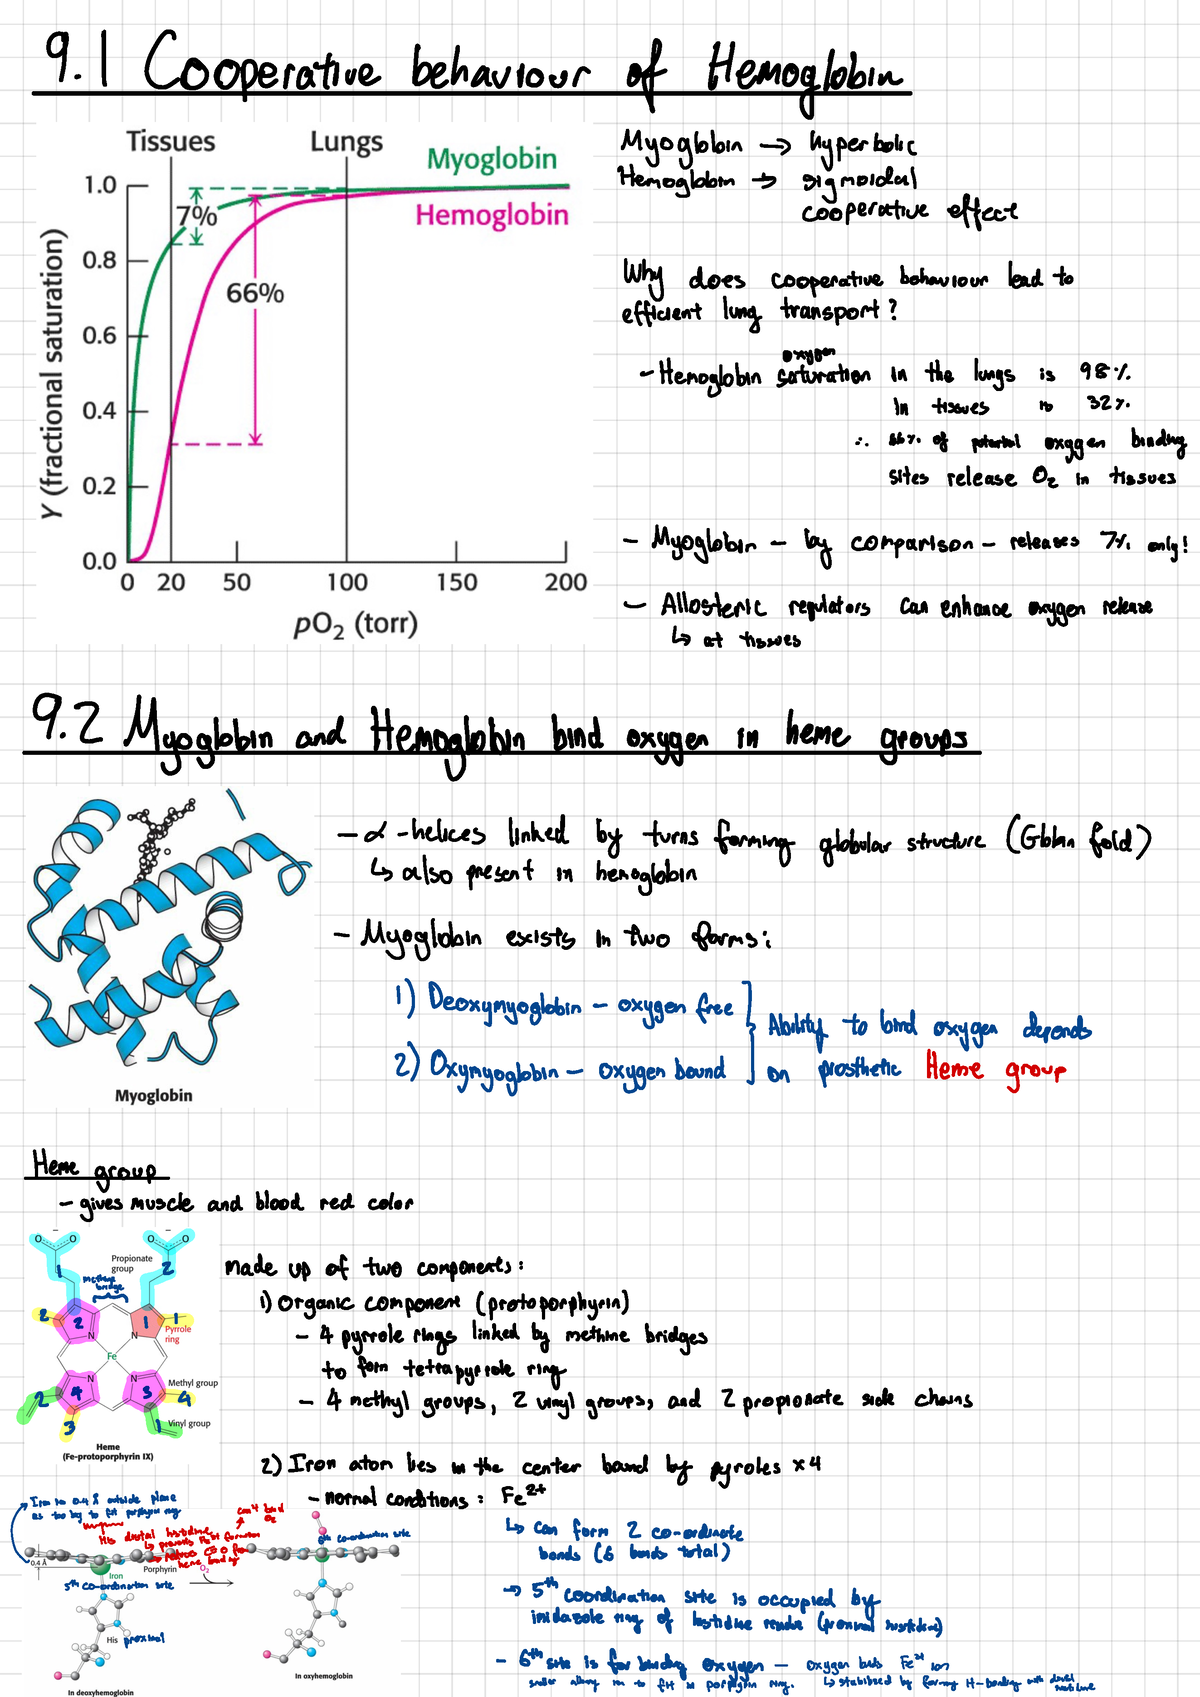 9.1 Cooperative behaviour of Hemoglobin
Tissues
Lungs
Myoglobin
Hemoglobin
7%
66%
Y (fractional saturation)
1.0
0.8
0.6
0.4
0.2
0.0
0 20 50 100 150 200
pO2 (torr)
Myoglobin → hyperbolic
Hemoglobin → sigmoidal
cooperative effect
Why does cooperative behaviour lead to
efficient lung transport?
oxygen
- Hemoglobin saturation in the lungs is 98%
in tissues is 32%
∴ 66% of potential oxygen binding
sites release O2 in tissues
- Myoglobin - by comparison - releases 7% only!
- Allosteric regulators can enhance oxygen release
↳ at tissues
9.2 Myoglobin and Hemoglobin bind oxygen in heme groups
- α-helices linked by turns forming globular structure (Globin fold)
↳ also present in hemoglobin
- Myoglobin exists in two forms:
1) Deoxymyoglobin - oxygen free
2) Oxymyoglobin - oxygen bound
Ability to bind oxygen depends
on prosthetic Heme group
Myoglobin
Heme group
- gives muscle and blood red color
Propionate
group
methine
bridge
1
2
2
2
1
1
Pyrrole
ring
N
N
Fe
N
N
Methyl group
2
4
3
4
3
1
Vinyl group
Heme
(Fe-protoporphyrin IX)
made up of two components:
1) Organic component (protoporphyrin)
- 4 pyrrole rings linked by methine bridges
to form tetrapyrrole ring
- 4 methyl groups, 2 vinyl groups, and 2 propionate side chains
2) Iron atom lies in the center bound by pyroles x4
- normal conditions: Fe2+
↳ can form 2 co-ordinate
bonds (6 bonds total)
→ 5th coordination site is occupied by
imidazole ring of histidine residue (proximal histidine)
- 6th site is for binding oxygen - oxygen binds Fe2+ ion
↳ stabilized by forming H-bonding with distal histidine
smaller allowing ion to fit in porphyrin ring.
Iron is 0.4 Å outside plane
as too big to fit porphyrin ring
can't bind
O2
His distal histidine
6th co-ordination site
0.4 Å
Iron
Porphyrin
O2
5th co-ordination site
His proximal
In deoxyhemoglobin
In oxyhemoglobin